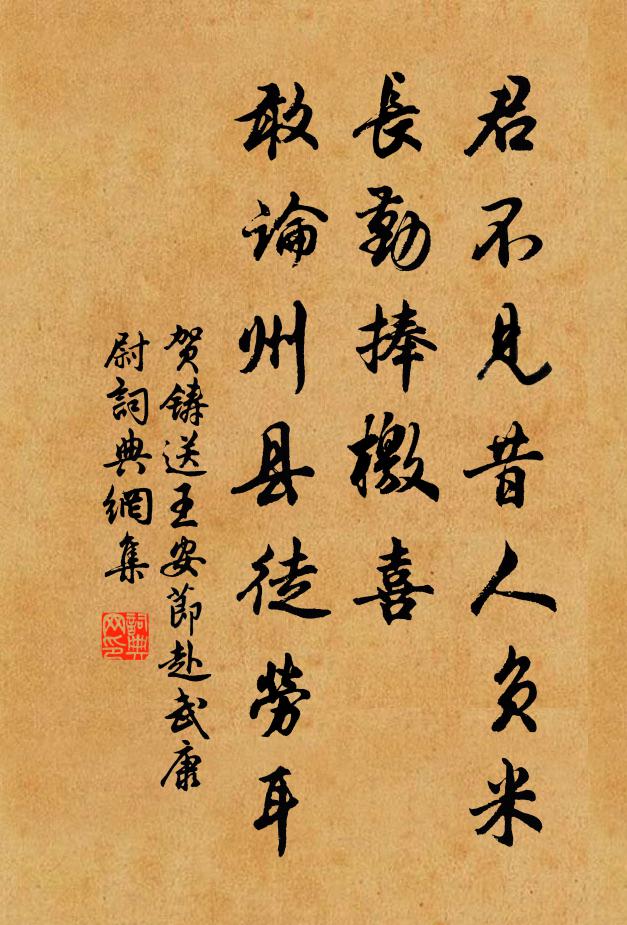 君不見昔人負米
長勤捧檄喜
敢論州县徒勞耳
贺鑄送王安節赴武康
尉詞典網集
詞典网印